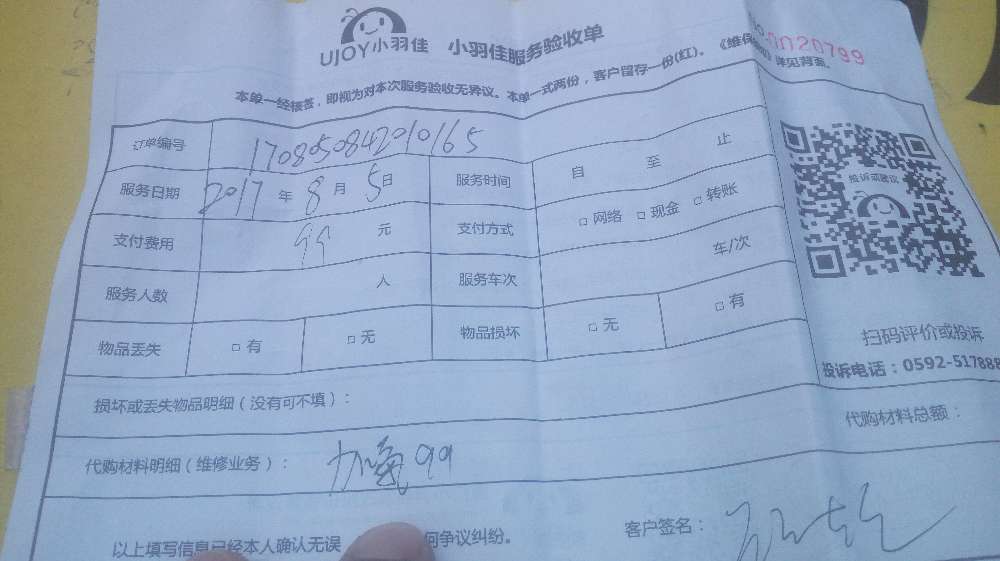 UJOY小羽佳 小羽佳服务验收单
0020799
本单一经核签,即视为对本次服务验收无异议。本单一式两份,客户留存一份(红)。《维保 详见背面。
订单编号 1708050842010165
服务日期 2017年8月5日 服务时间 自 至 止
支付费用 99 元 支付方式 □网络 □现金 □转账
服务人数 人 服务车次 车/次
物品丢失 □有 □无 物品损坏 □无 □有
投诉或建议
扫码评价或投诉
投诉电话:0592-517888
损坏或丢失物品明细(没有可不填):
代购材料总额:
代购材料明细(维修业务): 加氟99
以上填写信息已经本人确认无误 何争议纠纷。 客户签名: